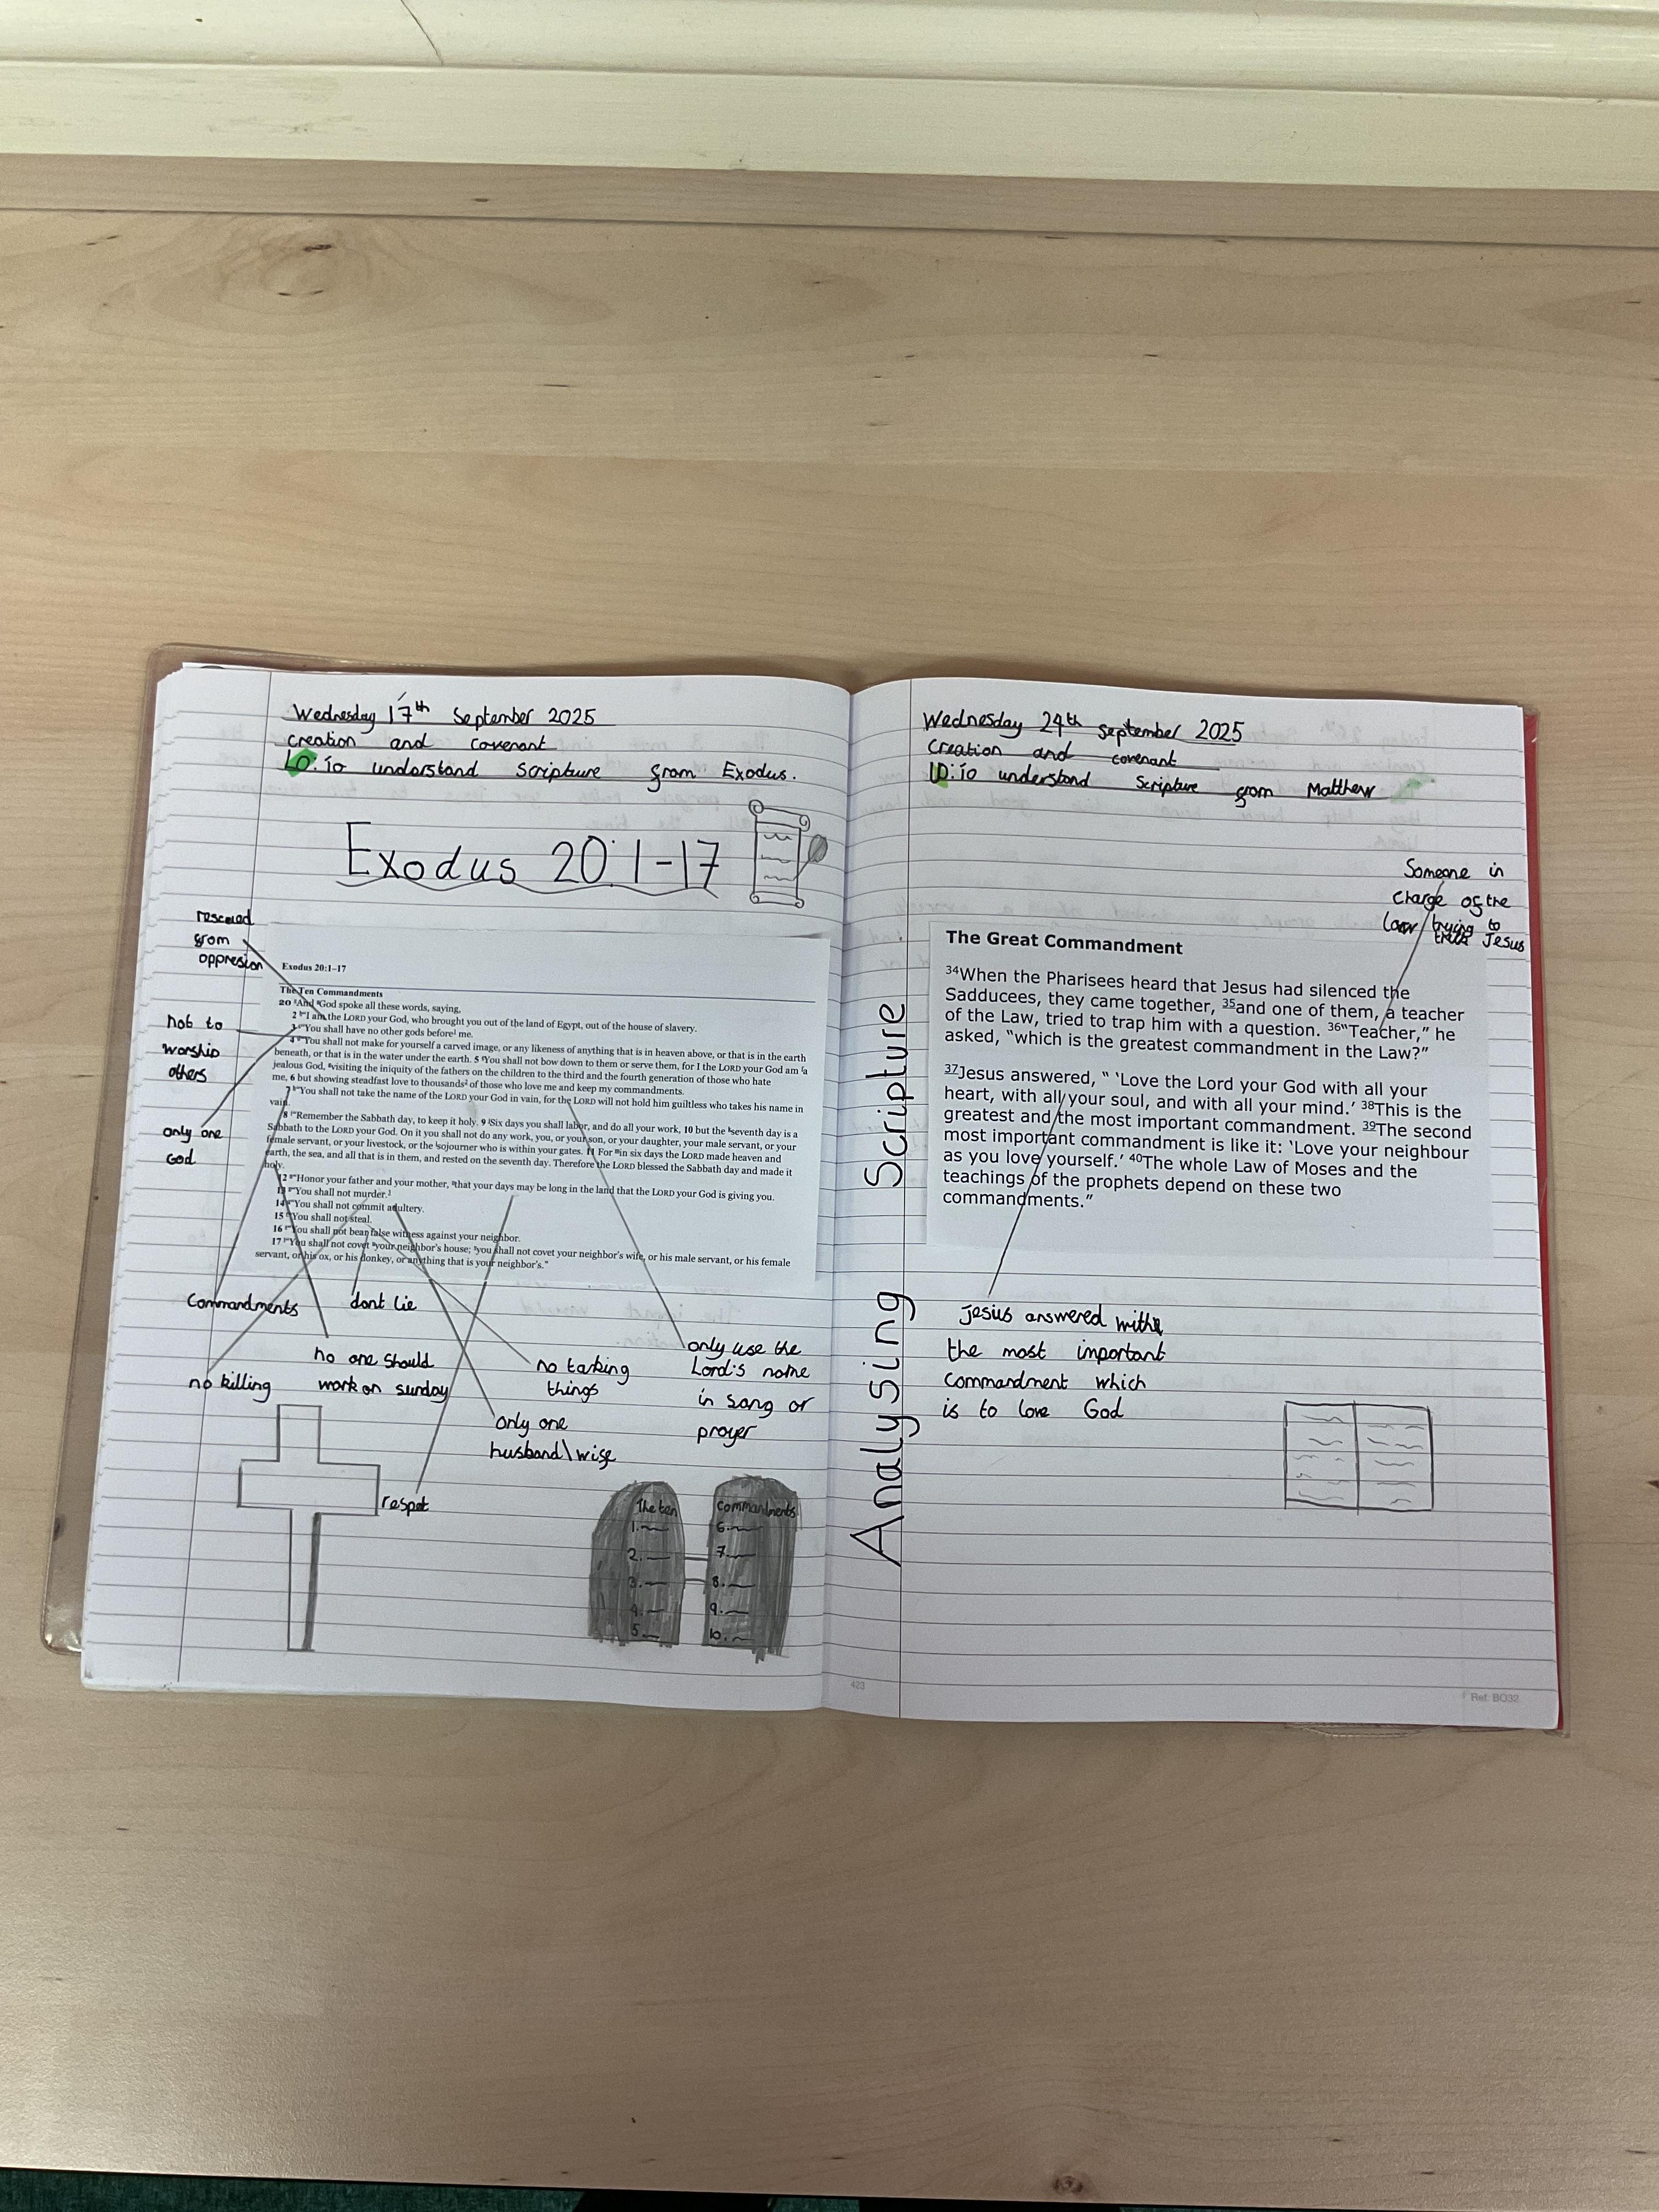 Wednesday 17th September 2025
Creation and covenant
LO: To understand scripture from Exodus.
Exodus 20:1-17
rescued
from
oppresion
not to
worship
others
only one
God
Exodus 20:1–17
The Ten Commandments
20 And God spoke all these words, saying,
2 "I am the LORD your God, who brought you out of the land of Egypt, out of the house of slavery.
3 "You shall have no other gods before me.
4 "You shall not make for yourself a carved image, or any likeness of anything that is in heaven above, or that is in the earth
beneath, or that is in the water under the earth. 5 You shall not bow down to them or serve them, for I the LORD your God am a
jealous God, visiting the iniquity of the fathers on the children to the third and the fourth generation of those who hate
me, 6 but showing steadfast love to thousands of those who love me and keep my commandments.
7 "You shall not take the name of the LORD your God in vain, for the LORD will not hold him guiltless who takes his name in
vain.
8 "Remember the Sabbath day, to keep it holy. 9 Six days you shall labor, and do all your work, 10 but the seventh day is a
Sabbath to the LORD your God. On it you shall not do any work, you, or your son, or your daughter, your male servant, or your
female servant, or your livestock, or the sojourner who is within your gates. 11 For in six days the LORD made heaven and
earth, the sea, and all that is in them, and rested on the seventh day. Therefore the LORD blessed the Sabbath day and made it
holy.
12 "Honor your father and your mother, that your days may be long in the land that the LORD your God is giving you.
13 "You shall not murder.
14 "You shall not commit adultery.
15 "You shall not steal.
16 "You shall not bear false witness against your neighbor.
17 "You shall not covet your neighbor's house; you shall not covet your neighbor's wife, or his male servant, or his female
servant, or his ox, or his donkey, or anything that is your neighbor's."
Commandments
dont lie
no one should
work on sunday
no killing
no tarking
things
only use the
Lord's name
in song or
prayer
only one
husband\wife
respet
The ten
1.
2.
3.
4.
5.
Commandments
6.
7.
8.
9.
10.
423
Analysing Scripture
Wednesday 24th September 2025
Creation and covenant
LO: To understand Scripture from Matthew
Someone in
charge of the
law trying to
trick Jesus
The Great Commandment
34When the Pharisees heard that Jesus had silenced the
Sadducees, they came together, 35and one of them, a teacher
of the Law, tried to trap him with a question. 36"Teacher," he
asked, "which is the greatest commandment in the Law?"
37Jesus answered, " 'Love the Lord your God with all your
heart, with all your soul, and with all your mind.' 38This is the
greatest and the most important commandment. 39The second
most important commandment is like it: 'Love your neighbour
as you love yourself.' 40The whole Law of Moses and the
teachings of the prophets depend on these two
commandments."
Jesus answered with
the most important
commandment which
is to love God
Ref: BO32